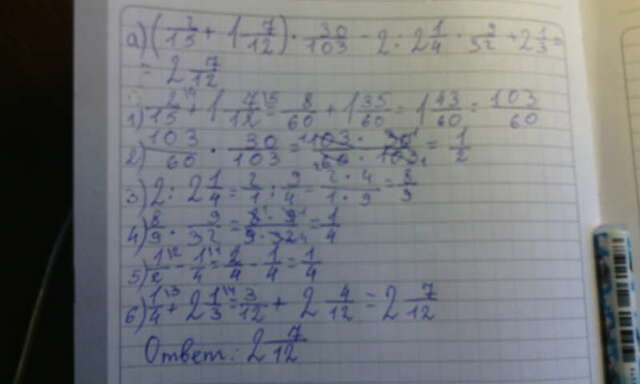 а) (2/15 + 1 7/12) · 30/103 - 2 : 2 1/4 · 9/32 + 2 1/3 =
= 2 7/12
1) 2/15 + 1 7/12 = 8/60 + 1 35/60 = 1 43/60 = 103/60
2) 103/60 · 30/103 = 103 · 30/60 · 103 = 1/2
3) 2 : 2 1/4 = 2/1 : 9/4 = 2 · 4/1 · 9 = 8/9
4) 8/9 · 9/32 = 8 · 9/9 · 32 = 1/4
5) 1/2 - 1/4 = 2/4 - 1/4 = 1/4
6) 1/4 + 2 1/3 = 3/12 + 2 4/12 = 2 7/12
Ответ: 2 7/12